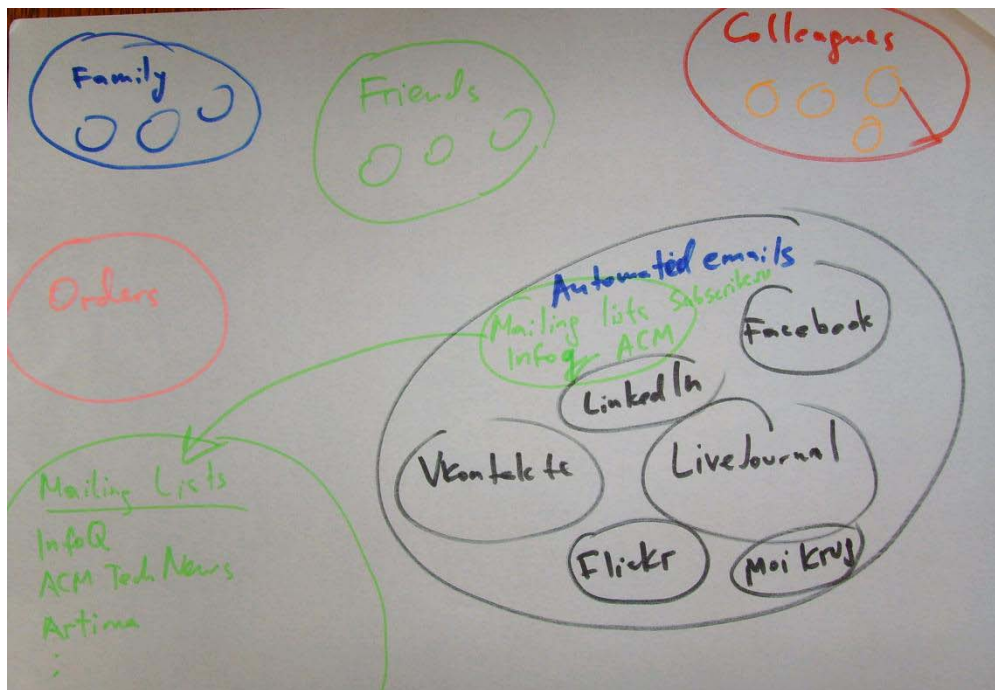 Family
Friends
Colleagues
Orders
Automated emails
Mailing lists
Infoq ACM
Facebook
LinkedIn
Vkontakte
LiveJournal
Flickr
Moi Krug
Mailing Lists
InfoQ
ACM Tech News
Artima
: